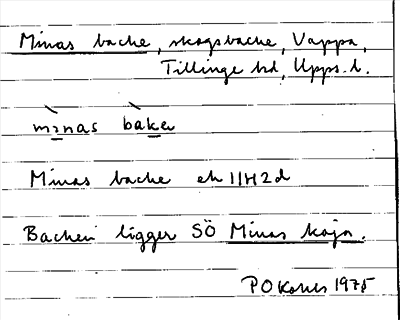 Minas backe, skogsbacke, Vappa,
Tillinge hd, Upps. l.
mìnas bàkɐ
Minas backe ek 11H2d
Backen ligger SÖ Minas koja.
1975